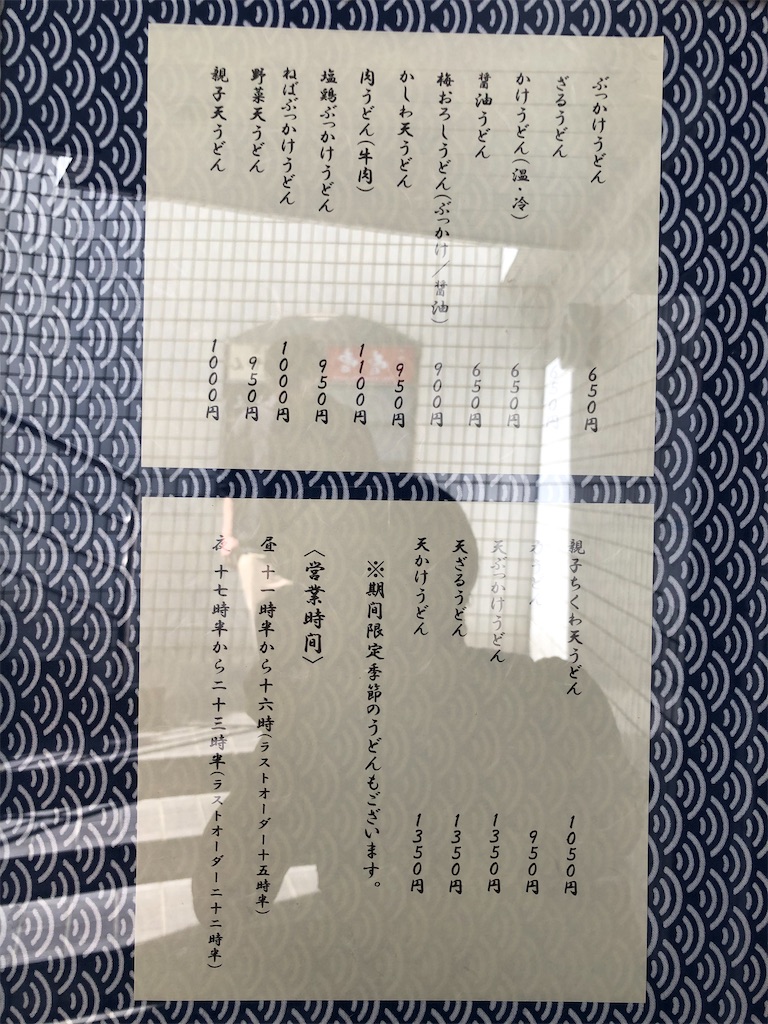 ぶっかけうどん 650円
ざるうどん
かけうどん(温・冷) 650円
醤油うどん 650円
梅おろしうどん(ぶっかけ/醤油) 900円
かしわ天うどん 950円
肉うどん(牛肉) 1100円
塩鶏ぶっかけうどん 950円
ねばぶっかけうどん 1000円
野菜天うどん 950円
親子天うどん 1000円
親子ちくわ天うどん 1050円
うどん 950円
天ぶっかけうどん 1350円
天ざるうどん 1350円
天かけうどん 1350円
※期间限定季節のうどんもございます。
〈営業時间〉
昼 十一時半から十六時(ラストオーダー十五時半)
夜 十七時半から二十三時半(ラストオーダー二十二時半)